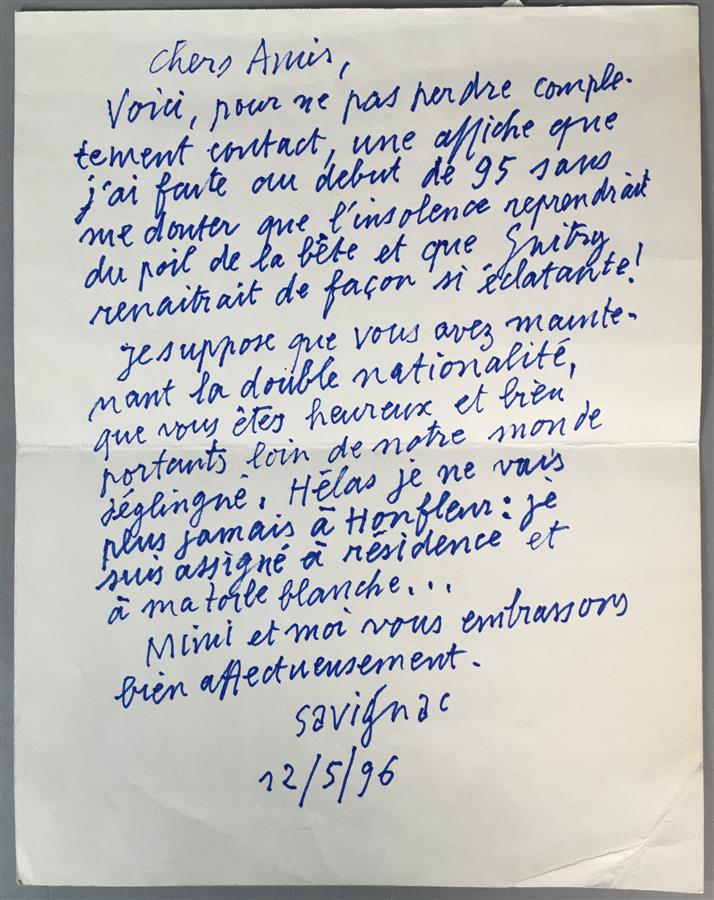 Chers Amis,
Voici, pour ne pas perdre comple-
tement contact, une affiche que
j'ai faite au debut de 95 sans
me douter que l'insolence reprendrait
du poil de la bête et que Guitry
renaitrait de façon si éclatante!
Je suppose que vous avez mainte-
nant la double nationalité,
que vous êtes heureux et bien
portants loin de notre monde
déglingué. Hélas je ne vais
plus jamais à Honfleur : je
suis assigné à résidence et
à ma toile blanche...
Mimi et moi vous embrassons
bien affectueusement.
Savignac
12/5/96